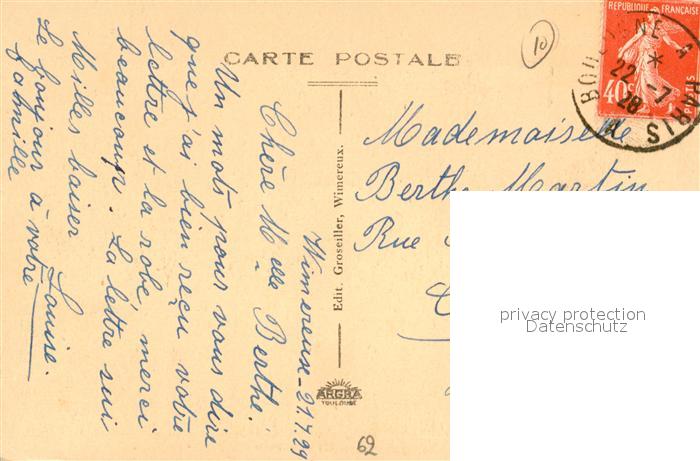 CARTE POSTALE
10
REPUBLIQUE FRANÇAISE
40c
POSTES
BOULOGNE A PARIS
22-7
28
Wimereux-21.7.29
Chère Melle Berthe.
Un mots pour vous dire
que j'ai bien reçu votre
lettre et la robe, merci
beaucoup. La lettre sui
Milles baiser Louise.
Le toujour à votre
famille
Edit. Groseiller, Wimereux.
ARGRA
TOULOUSE
62
Mademoiselle
Berthe Martin
Rue
privacy protection
Datenschutz